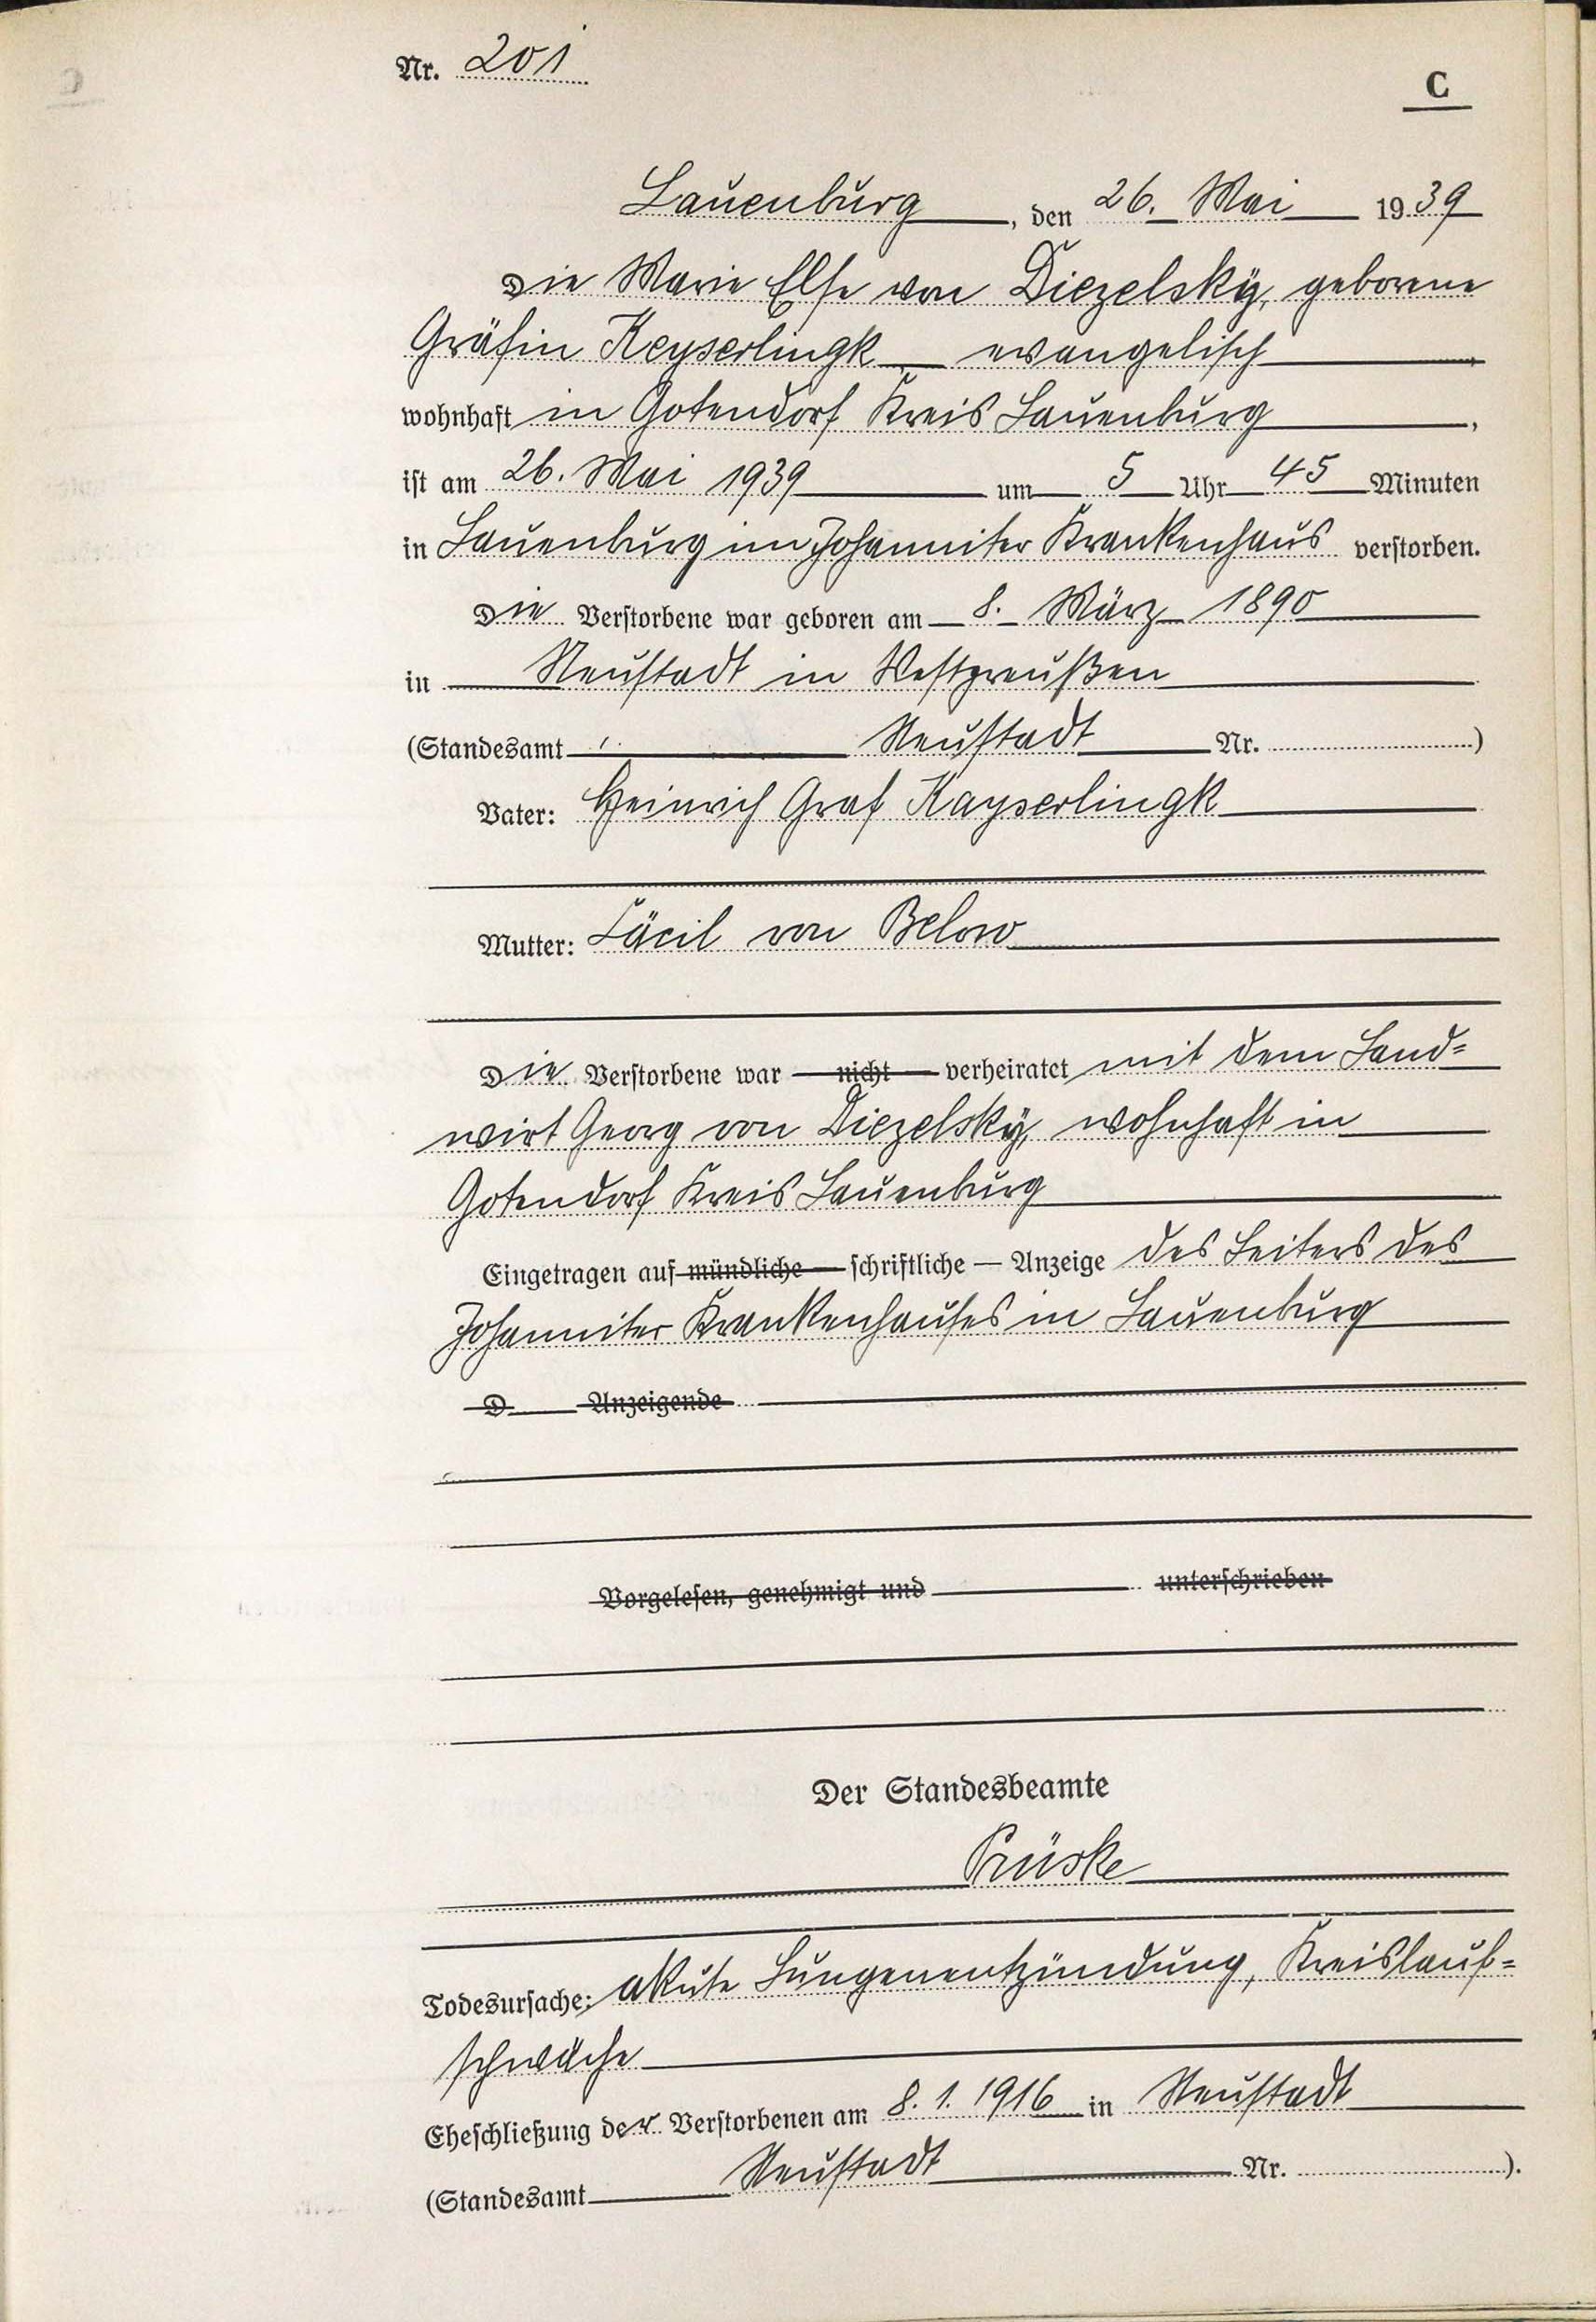 Nr. 201
C
Lauenburg, den 26. Mai 1939
Die Marie Else von Diezelsky, geborene
Gräfin Keyserlingk evangelisch,
wohnhaft in Gotendorf Kreis Lauenburg,
ist am 26. Mai 1939 um 5 Uhr 45 Minuten
in Lauenburg im Johanniter Krankenhaus verstorben.
Die Verstorbene war geboren am 8. März 1890
in Neustadt in Westpreußen
(Standesamt Neustadt Nr. )
Vater: Heinrich Graf Kayserlingk
Mutter: Cäcil von Below
Die Verstorbene war — nicht — verheiratet mit dem Land=
wirt Georg von Diezelsky, wohnhaft in
Gotendorf Kreis Lauenburg
Eingetragen auf mündliche — schriftliche — Anzeige des Leiters des
Johanniter Krankenhauses in Lauenburg
D Anzeigende
Vorgelesen, genehmigt und unterschrieben
Der Standesbeamte
Prüske
Todesursache: akute Lungenentzündung, Kreislauf=
schwäche
Eheschließung der Verstorbenen am 8. 1. 1916 in Neustadt
(Standesamt Neustadt Nr. ).